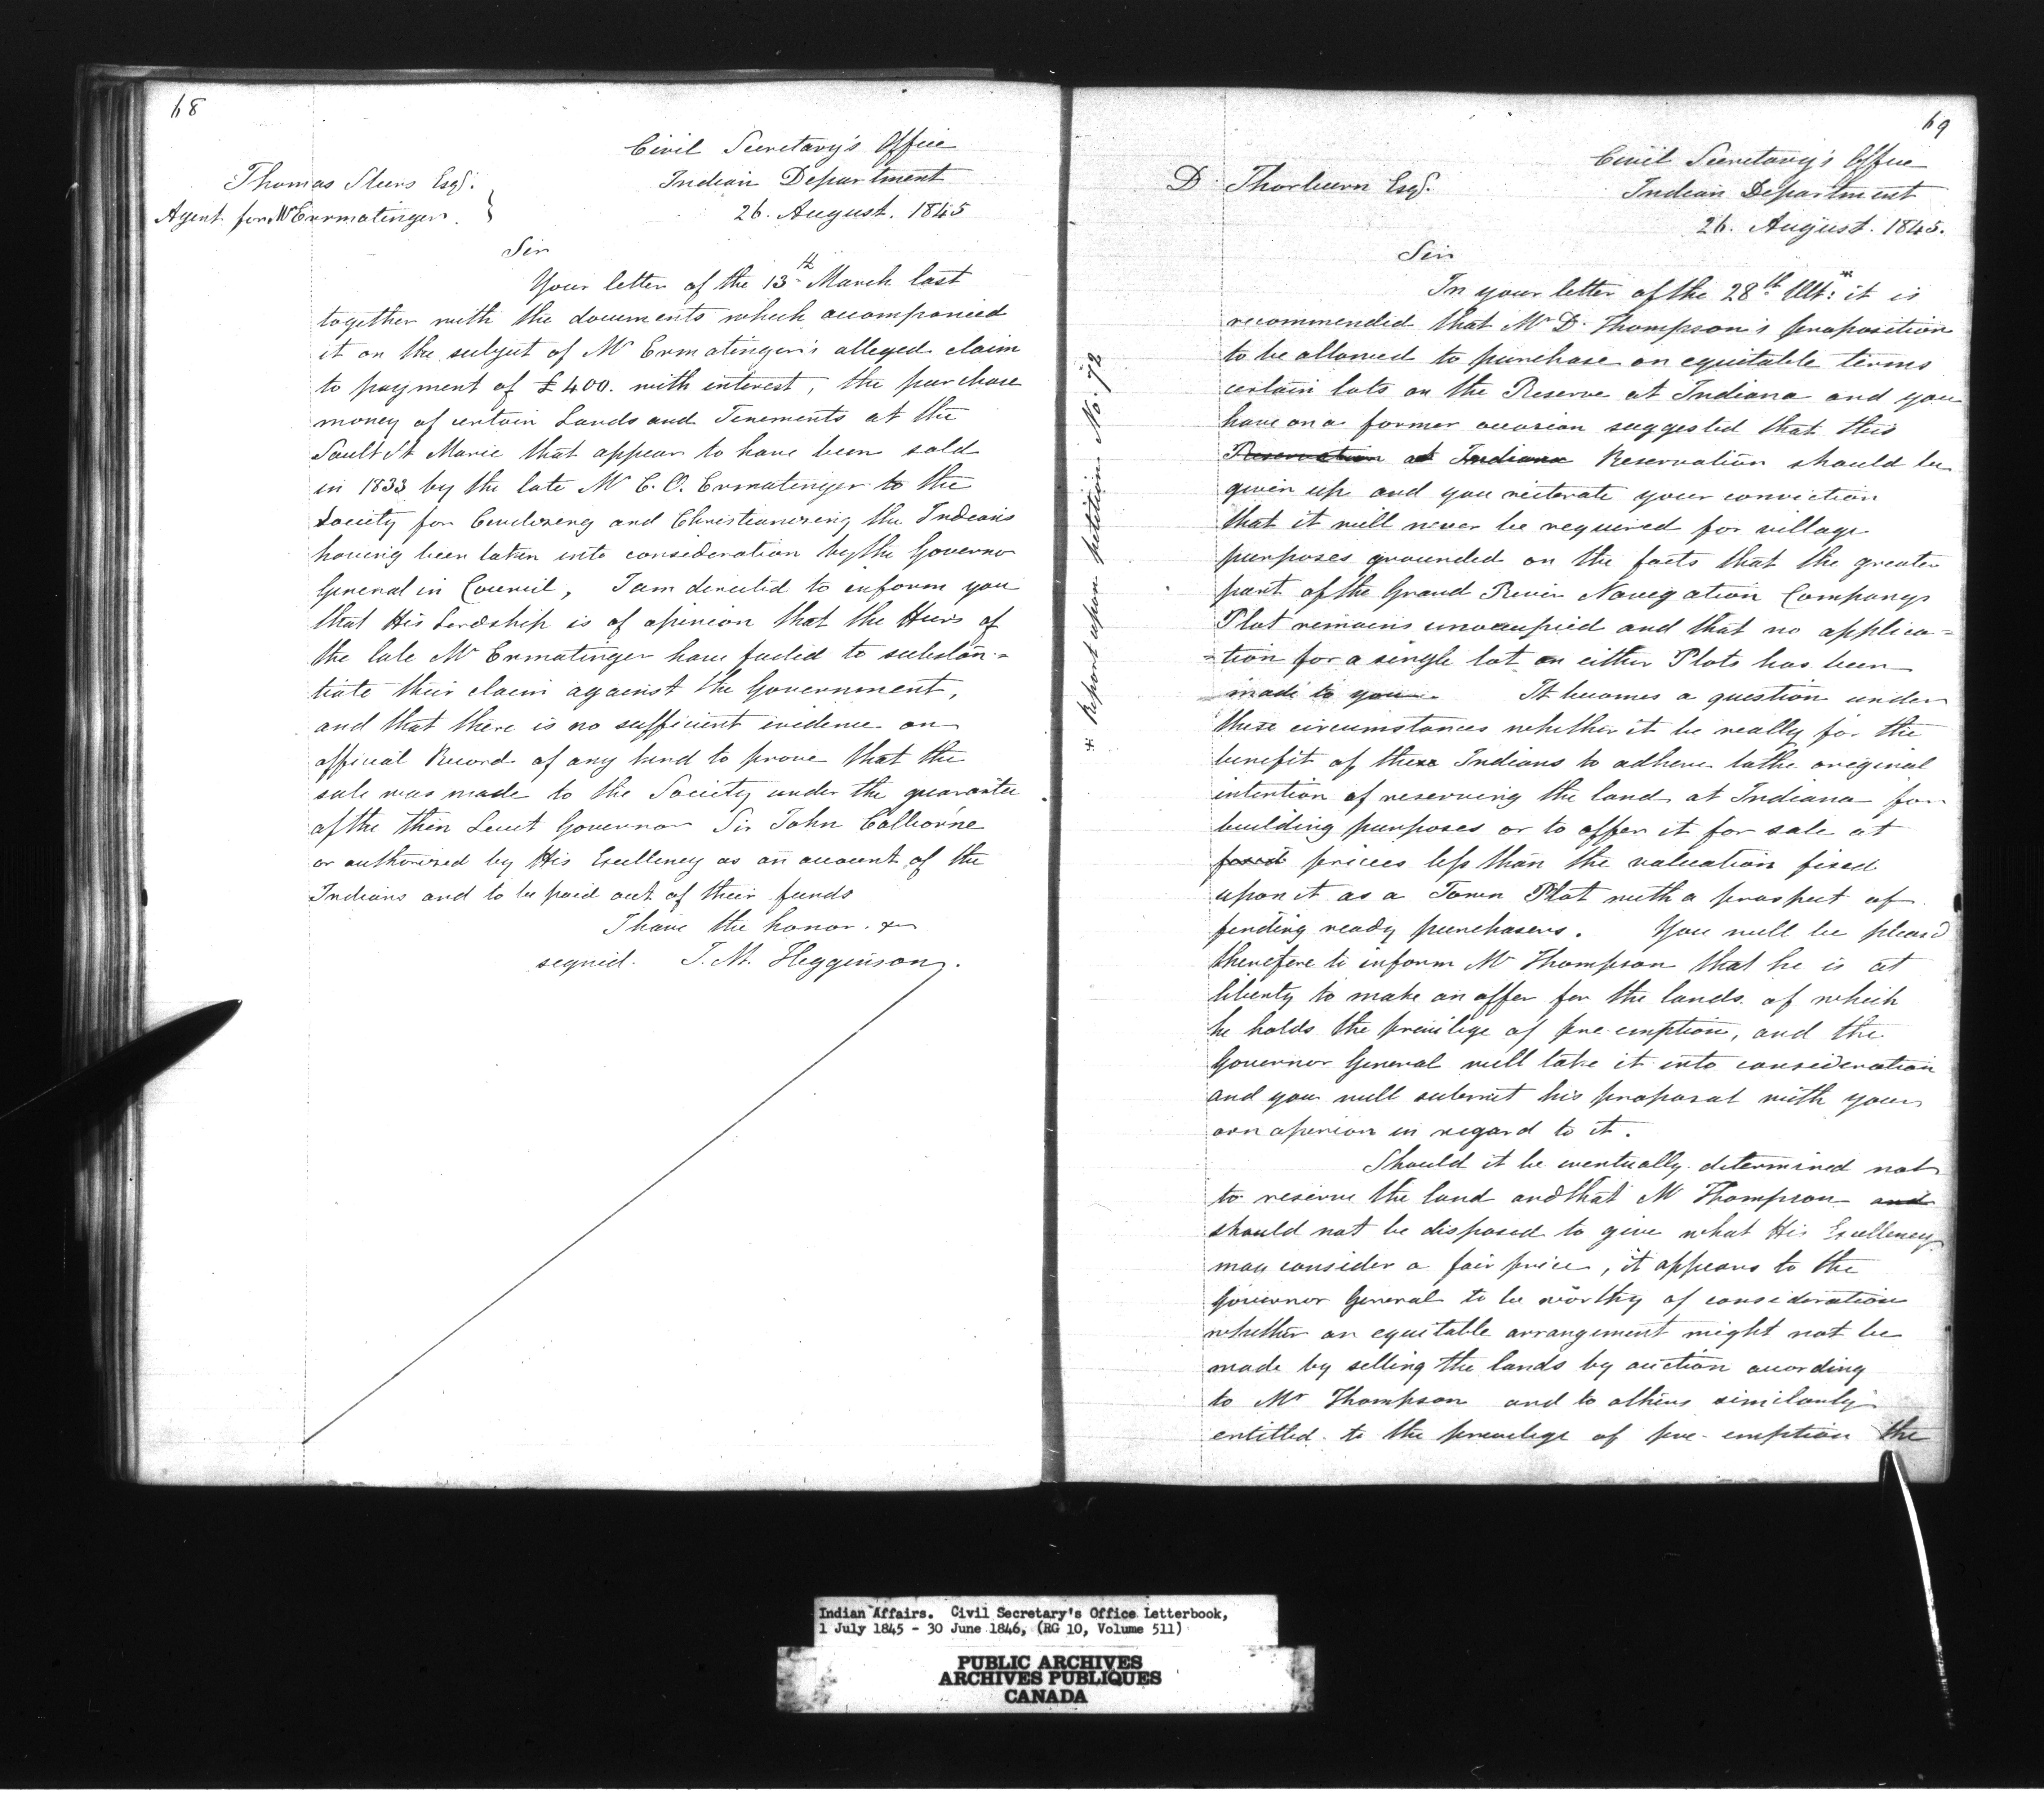 68
Civil Secretary's Office
Indian Department
26. August. 1845
Thomas Steers Esqr.
Agent for Mr Ermatinger.
Sir
Your letter of the 13th March last
together with the documents which accompanied
it on the subject of Mr Ermatinger's alleged claim
to payment of £400. with interest, the purchase
money of certain Lands and Tenements at the
Sault St Marie that appear to have been sold
in 1833 by the late Mr C. O. Ermatinger to the
Society for Civilizing and Christianizing the Indians
having been taken into consideration by the Governor
General in Council, I am directed to inform you
that His Lordship is of opinion that the Heirs of
the late Mr Ermatinger have failed to substan=
tiate their claim against the Government,
and that there is no sufficient evidence on
official Record of any kind to prove that the
sale was made to the Society under the guarantee
of the then Lieut Governor Sir John Colborne
or authorized by His Excellency as on account of the
Indians and to be paid out of their funds
I have the honor. &c
signed. J. M. Higginson.
69
Civil Secretary's Office
Indian Department
26. August. 1845.
D Thorburn Esqr.
Sir
In your letter of the 28th Ult:* it is
recommended that Mr D. Thompson's proposition
to be allowed to purchase on equitable terms
certain lots on the Reserve at Indiana and you
have on a former occasion suggested that this
Reservation at Indiana Reservation should be
given up and you reiterate your conviction
that it will never be required for village
purposes grounded on the facts that the greater
part of the Grand River Navigation Companys
Plot remains unoccupied and that no applica=
=tion for a single lot on either Plots has been
made to you. It becomes a question under
these circumstances whether it be really for the
benefit of these Indians to adhere to the original
intention of reserving the land at Indiana for
building purposes or to offer it for sale at
prices less than the valuation fixed
upon it as a Town Plot with a prospect of
finding ready purchasers. You will be pleased
therefore to inform Mr Thompson that he is at
liberty to make an offer for the lands of which
he holds the privilege of pre-emption, and the
Governor General will take it into consideration
and you will submit his proposal with your
own opinion in regard to it.
Should it be eventually determined not
to reserve the land and that Mr Thompson and
should not be disposed to give what His Excellency
may consider a fair price, it appears to the
Governor General to be worthy of consideration
whether an equitable arrangement might not be
made by selling the lands by auction according
to Mr Thompson and to others similarly
entitled to the privilege of pre-emption the
* Report upon petition No. 72
Indian Affairs. Civil Secretary's Office Letterbook,
1 July 1845 - 30 June 1846, (RG 10, Volume 511)
PUBLIC ARCHIVES
ARCHIVES PUBLIQUES
CANADA